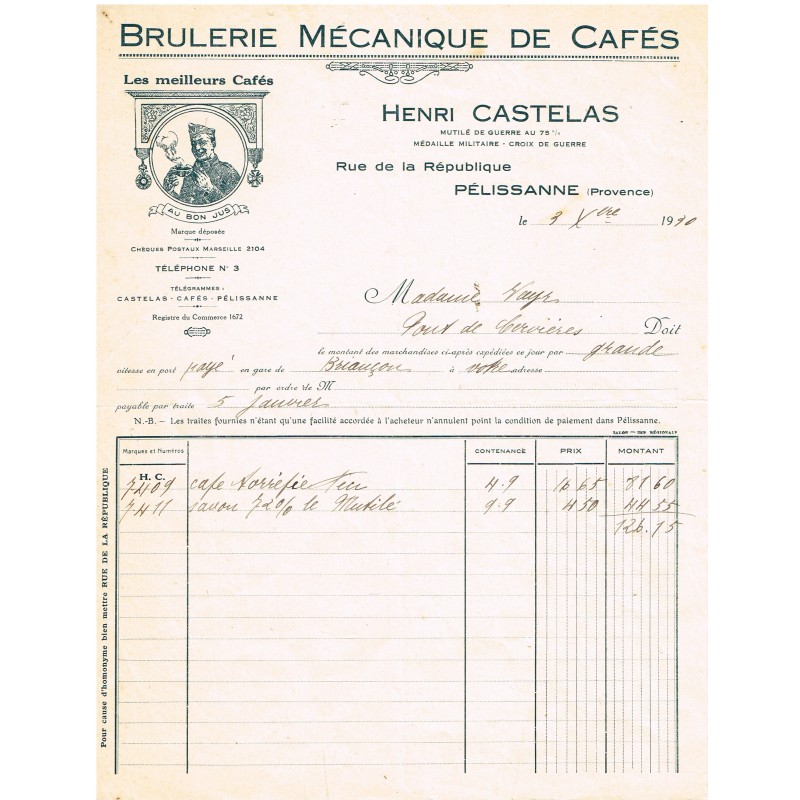 BRULERIE MÉCANIQUE DE CAFÉS
Les meilleurs Cafés
AU BON JUS
Marque déposée
CHÈQUES POSTAUX MARSEILLE 2104
TÉLÉPHONE N° 3
TÉLÉGRAMMES :
CASTELAS - CAFÉS - PÉLISSANNE
Registre du Commerce 1672
HENRI CASTELAS
MUTILÉ DE GUERRE AU 75 %
MÉDAILLE MILITAIRE - CROIX DE GUERRE
Rue de la République
PÉLISSANNE (Provence)
le 3 Xbre 1930
Madame
Pont de Cervières Doit
le montant des marchandises ci-après expédiées ce jour par grande
vitesse en port payé en gare de Briançon à votre adresse
par ordre de M
payable par traite 5 Janvier
N.-B. — Les traites fournies n'étant qu'une facilité accordée à l'acheteur n'annulent point la condition de paiement dans Pélissanne.
SALON — IMP. RÉGIONALE
Marques et Numéros CONTENANCE PRIX MONTANT
H. C.
7409 cafe torréfié 4.9 16 65 81 60
7411 savon 72% le Mutilé 9.9 4 50 44 55
126.15
Pour cause d'homonyme bien mettre RUE DE LA RÉPUBLIQUE